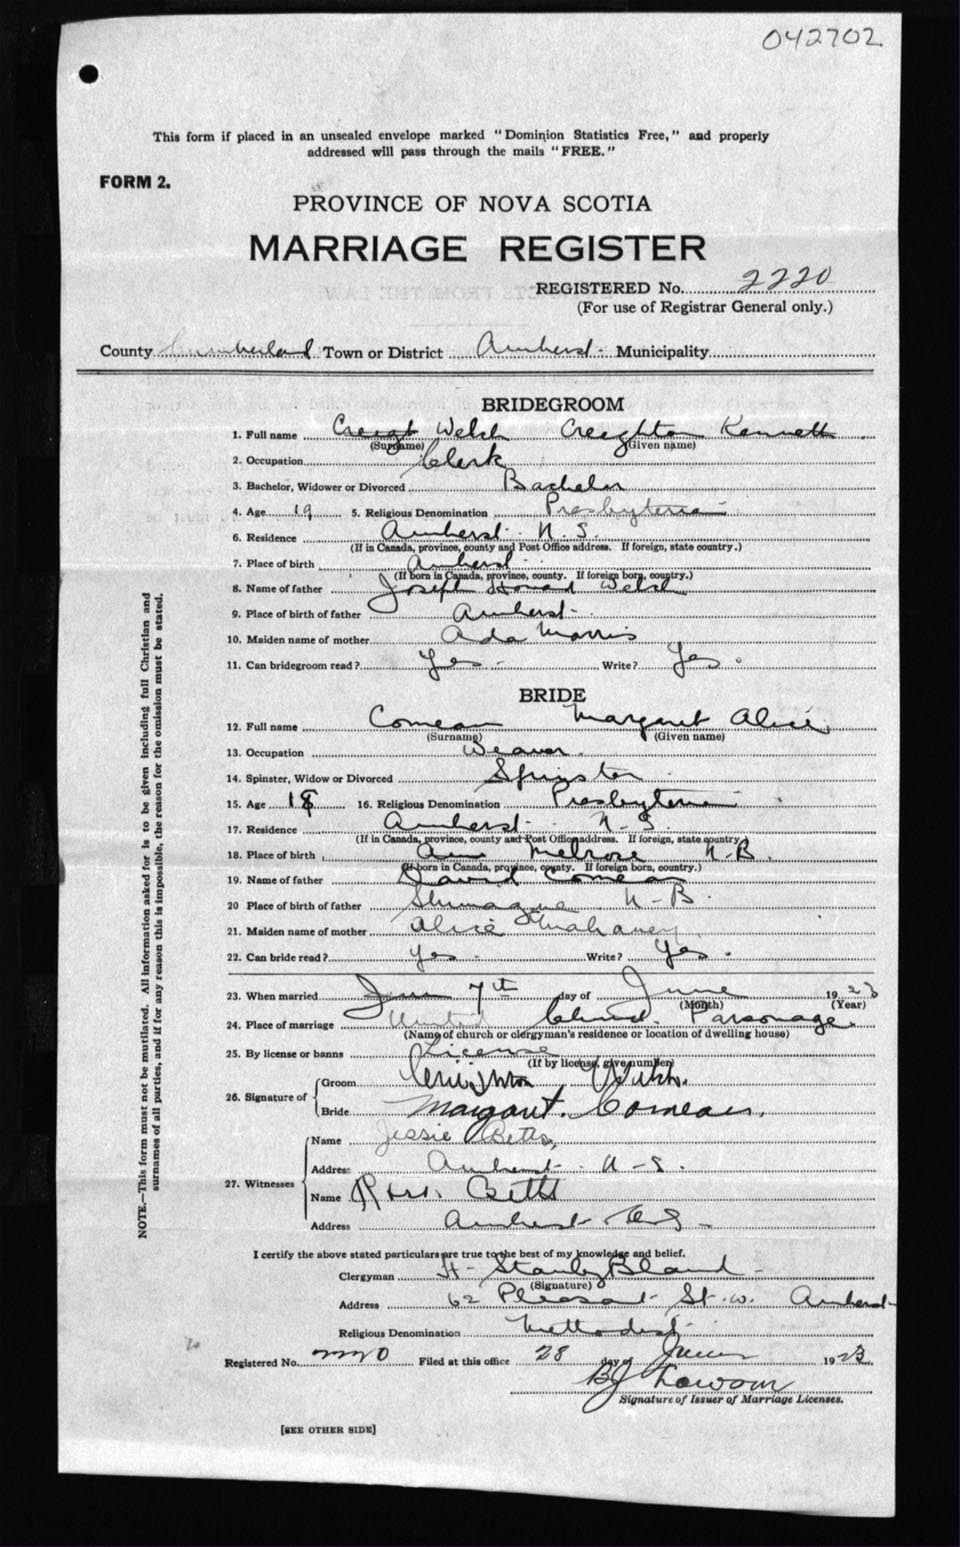 042702
This form if placed in an unsealed envelope marked "Dominion Statistics Free," and properly
addressed will pass through the mails "FREE."
FORM 2.
PROVINCE OF NOVA SCOTIA
MARRIAGE REGISTER
REGISTERED No. 2220
(For use of Registrar General only.)
County Cumberland Town or District Amherst Municipality
BRIDEGROOM
1. Full name Welsh Creighton Kennett
(Surname) (Given name)
2. Occupation Clerk
3. Bachelor, Widower or Divorced Bachelor
4. Age 19 5. Religious Denomination Presbyterian
6. Residence Amherst N. S.
(If in Canada, province, county and Post Office address. If foreign, state country.)
7. Place of birth Amherst
(If born in Canada, province, county. If foreign born, country.)
8. Name of father Joseph Howard Welsh
9. Place of birth of father Amherst
10. Maiden name of mother Ada Morris
11. Can bridegroom read? Yes Write? Yes
BRIDE
12. Full name Comeau Margaret Alice
(Surname) (Given name)
13. Occupation Weaver
14. Spinster, Widow or Divorced Spinster
15. Age 18 16. Religious Denomination Presbyterian
17. Residence Amherst N. S.
(If in Canada, province, county and Post Office address. If foreign, state country.)
18. Place of birth Melrose N. B.
(If born in Canada, province, county. If foreign born, country.)
19. Name of father David Comeau
20 Place of birth of father N. B.
21. Maiden name of mother Alice Mahaney
22. Can bride read? yes Write? Yes
23. When married 7th day of June 1923
(Month) (Year)
24. Place of marriage United Church Parsonage
(Name of church or clergyman's residence or location of dwelling house)
25. By license or banns License
(If by license, give number)
26. Signature of
Groom Creighton
Bride Margaret Comeau.
27. Witnesses
Name Jessie Betts,
Address Amherst N. S.
Name Betts
Address Amherst N S
I certify the above stated particulars are true to the best of my knowledge and belief.
Clergyman H. Stanley Bland
(Signature)
Address 62 Pleasant St. W. Amherst
Religious Denomination Methodist
Registered No. 2220 Filed at this office 28 day of June 1923
Signature of Issuer of Marriage Licenses.
[SEE OTHER SIDE]
NOTE.—This form must not be mutilated. All information asked for is to be given including full Christian and
surnames of all parties, and if for any reason this is impossible, the reason for the omission must be stated.